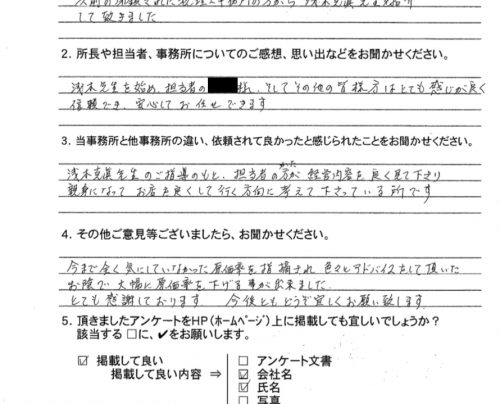 して頂きました
2. 所長や担当者、事務所についてのご感想、思い出などをお聞かせください。
浅木先生を始め、担当者の 様、そしてその他の皆様方はとても感じが良く
信頼でき、安心してお任せできます
3. 当事務所と他事務所の違い、依頼されて良かったと感じられたことをお聞かせください。
浅木克眞先生のご指導のもと、担当者の方が経営内容を良く見て下さり
親身になって お店を良くして行く方向に考えて下さっている所です
4. その他ご意見等ございましたら、お聞かせください。
今まで全く気にしていなかった原価率を指摘され 色々とアドバイスをして頂いた
お陰で大幅に原価率を下げる事が出来ました
とても感謝しております 今後ともどうぞ宜しくお願い致します
5. 頂きましたアンケートをHP(ホームページ)上に掲載しても宜しいでしょうか?
該当する □に、✔をお願いします。
☑ 掲載して良い
掲載して良い内容 ⇒
□ アンケート文書
☑ 会社名
☑ 氏名
□ 写真